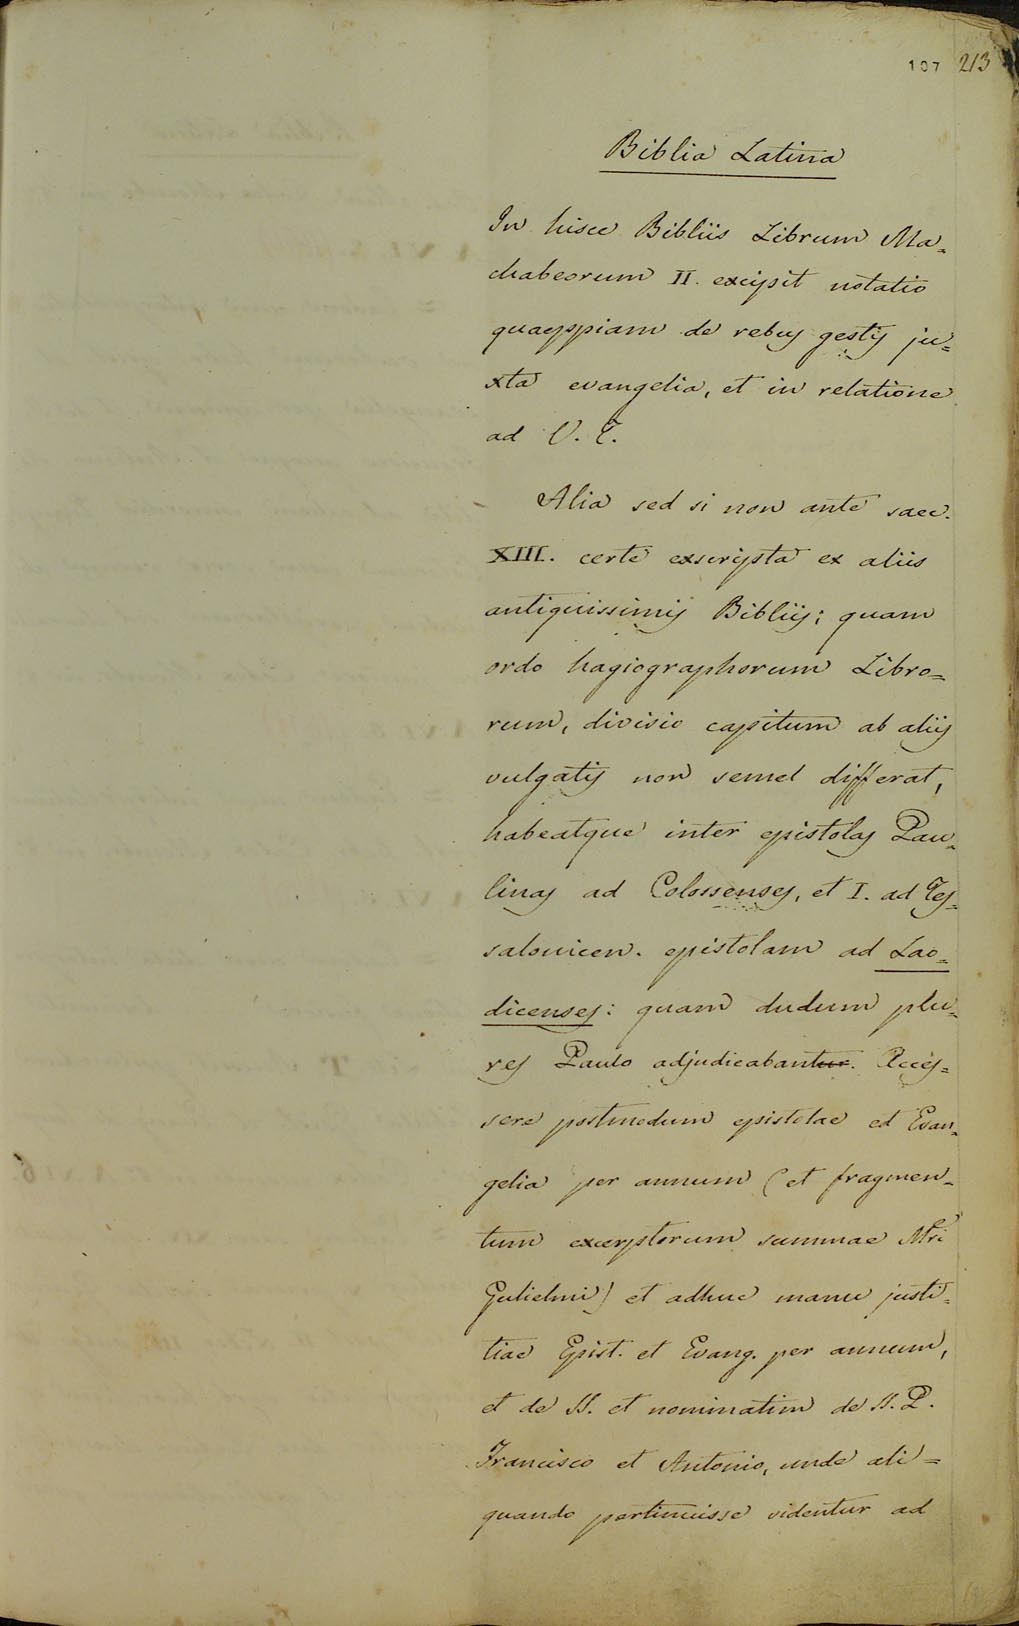 107 213
Biblia Latina
In hisce Bibliis Librum Ma=
chabeorum II. excipit notatio
quaeppiam de rebus gestis ju=
xta evangelia, et in relatione
ad V. T.
Alia sed si non ante saec.
XIII. certe exscripta ex aliis
antiquissimis Bibliis; quam
ordo hagiographorum Libro=
rum, divisio capitum ab aliis
vulgatis non semel differat,
habeatque inter epistolas Pau=
linas ad Colossenses, et I. ad Tes=
salonicen. epistolam ad Lao=
dicenses: quam dudum plu=
res Paulo adjudicabantur. Acces=
sere postmodum epistolae et Evan=
gelia per annum (et fragmen=
tum excerptorum summae Mri
Gulielmi) et adhuc manu justi=
tiae Epist. et Evang. per annum,
et de SS. et nominatim de S. P.
Francisco et Antonio, unde ali=
quando pertinuisse videntur ad